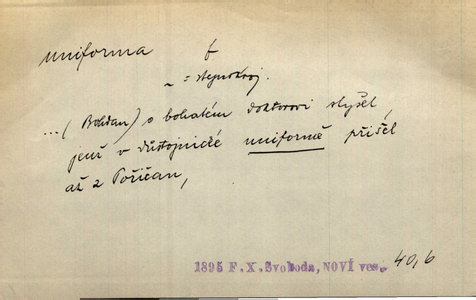 uniforma f
~ = stejnokroj.
...(Bohdan) o bohatém doktorovi slyšel,
jenž v důstojnické uniformě přišel
až z Poříčan,
1895 F.X.Svoboda, NOVÍ ves. 40,6